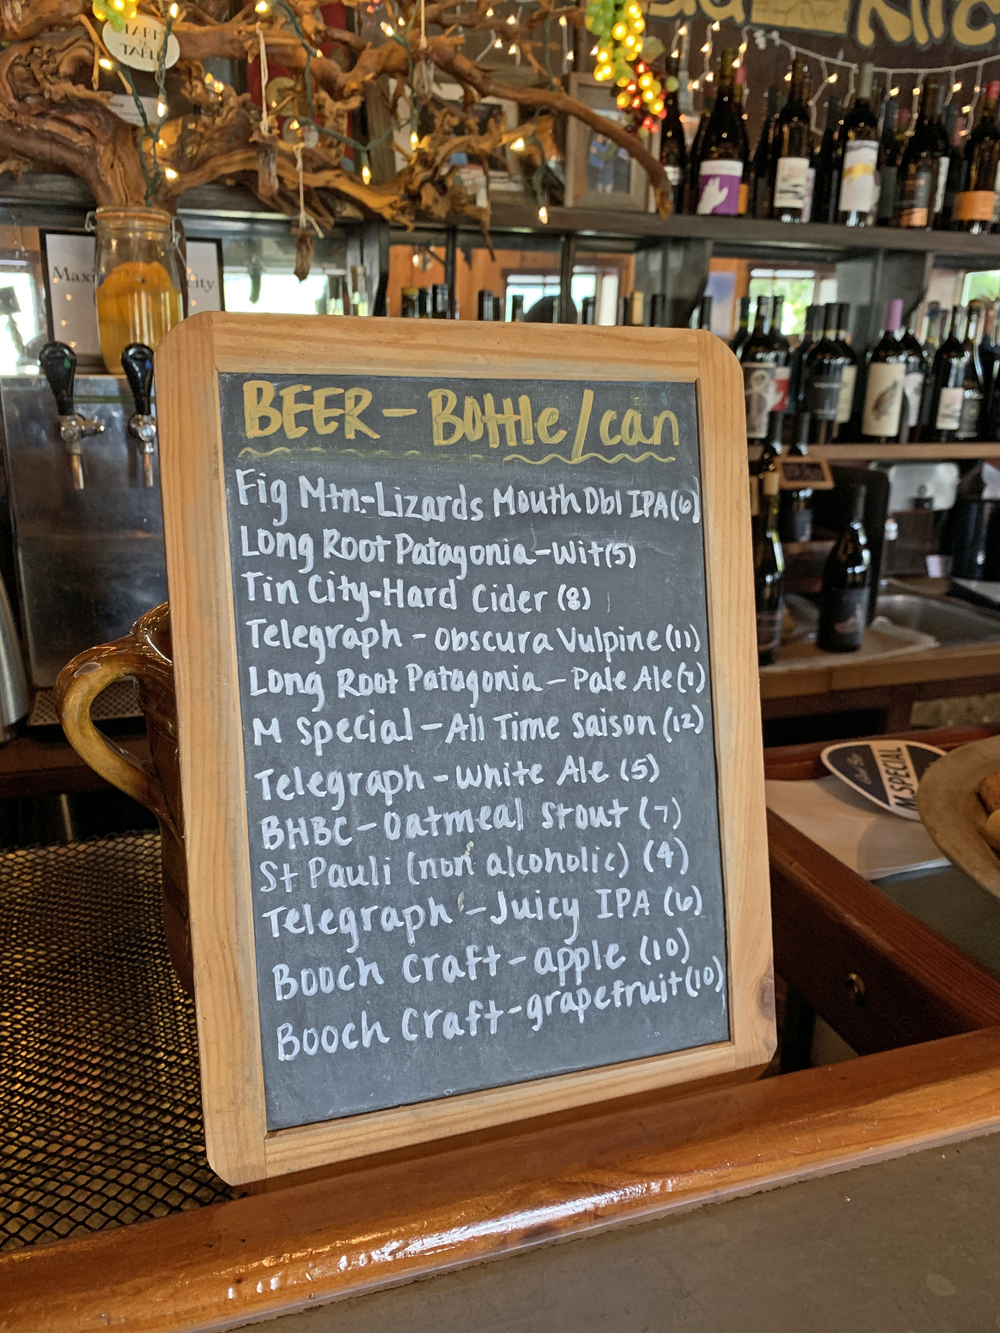 FARM
to
TABLE
Kitc
Maxi
city
BEER - Bottle/can
Fig Mtn.-Lizards Mouth Dbl IPA (6)
Long Root Patagonia-Wit (5)
Tin City-Hard Cider (8)
Telegraph - Obscura Vulpine (11)
Long Root Patagonia - Pale Ale (7)
M Special - All Time Saison (12)
Telegraph - White Ale (5)
BHBC - Oatmeal Stout (7)
St Pauli (non alcoholic) (4)
Telegraph - Juicy IPA (6)
Booch Craft - apple (10)
Booch Craft - grapefruit (10)
M.SPECIAL